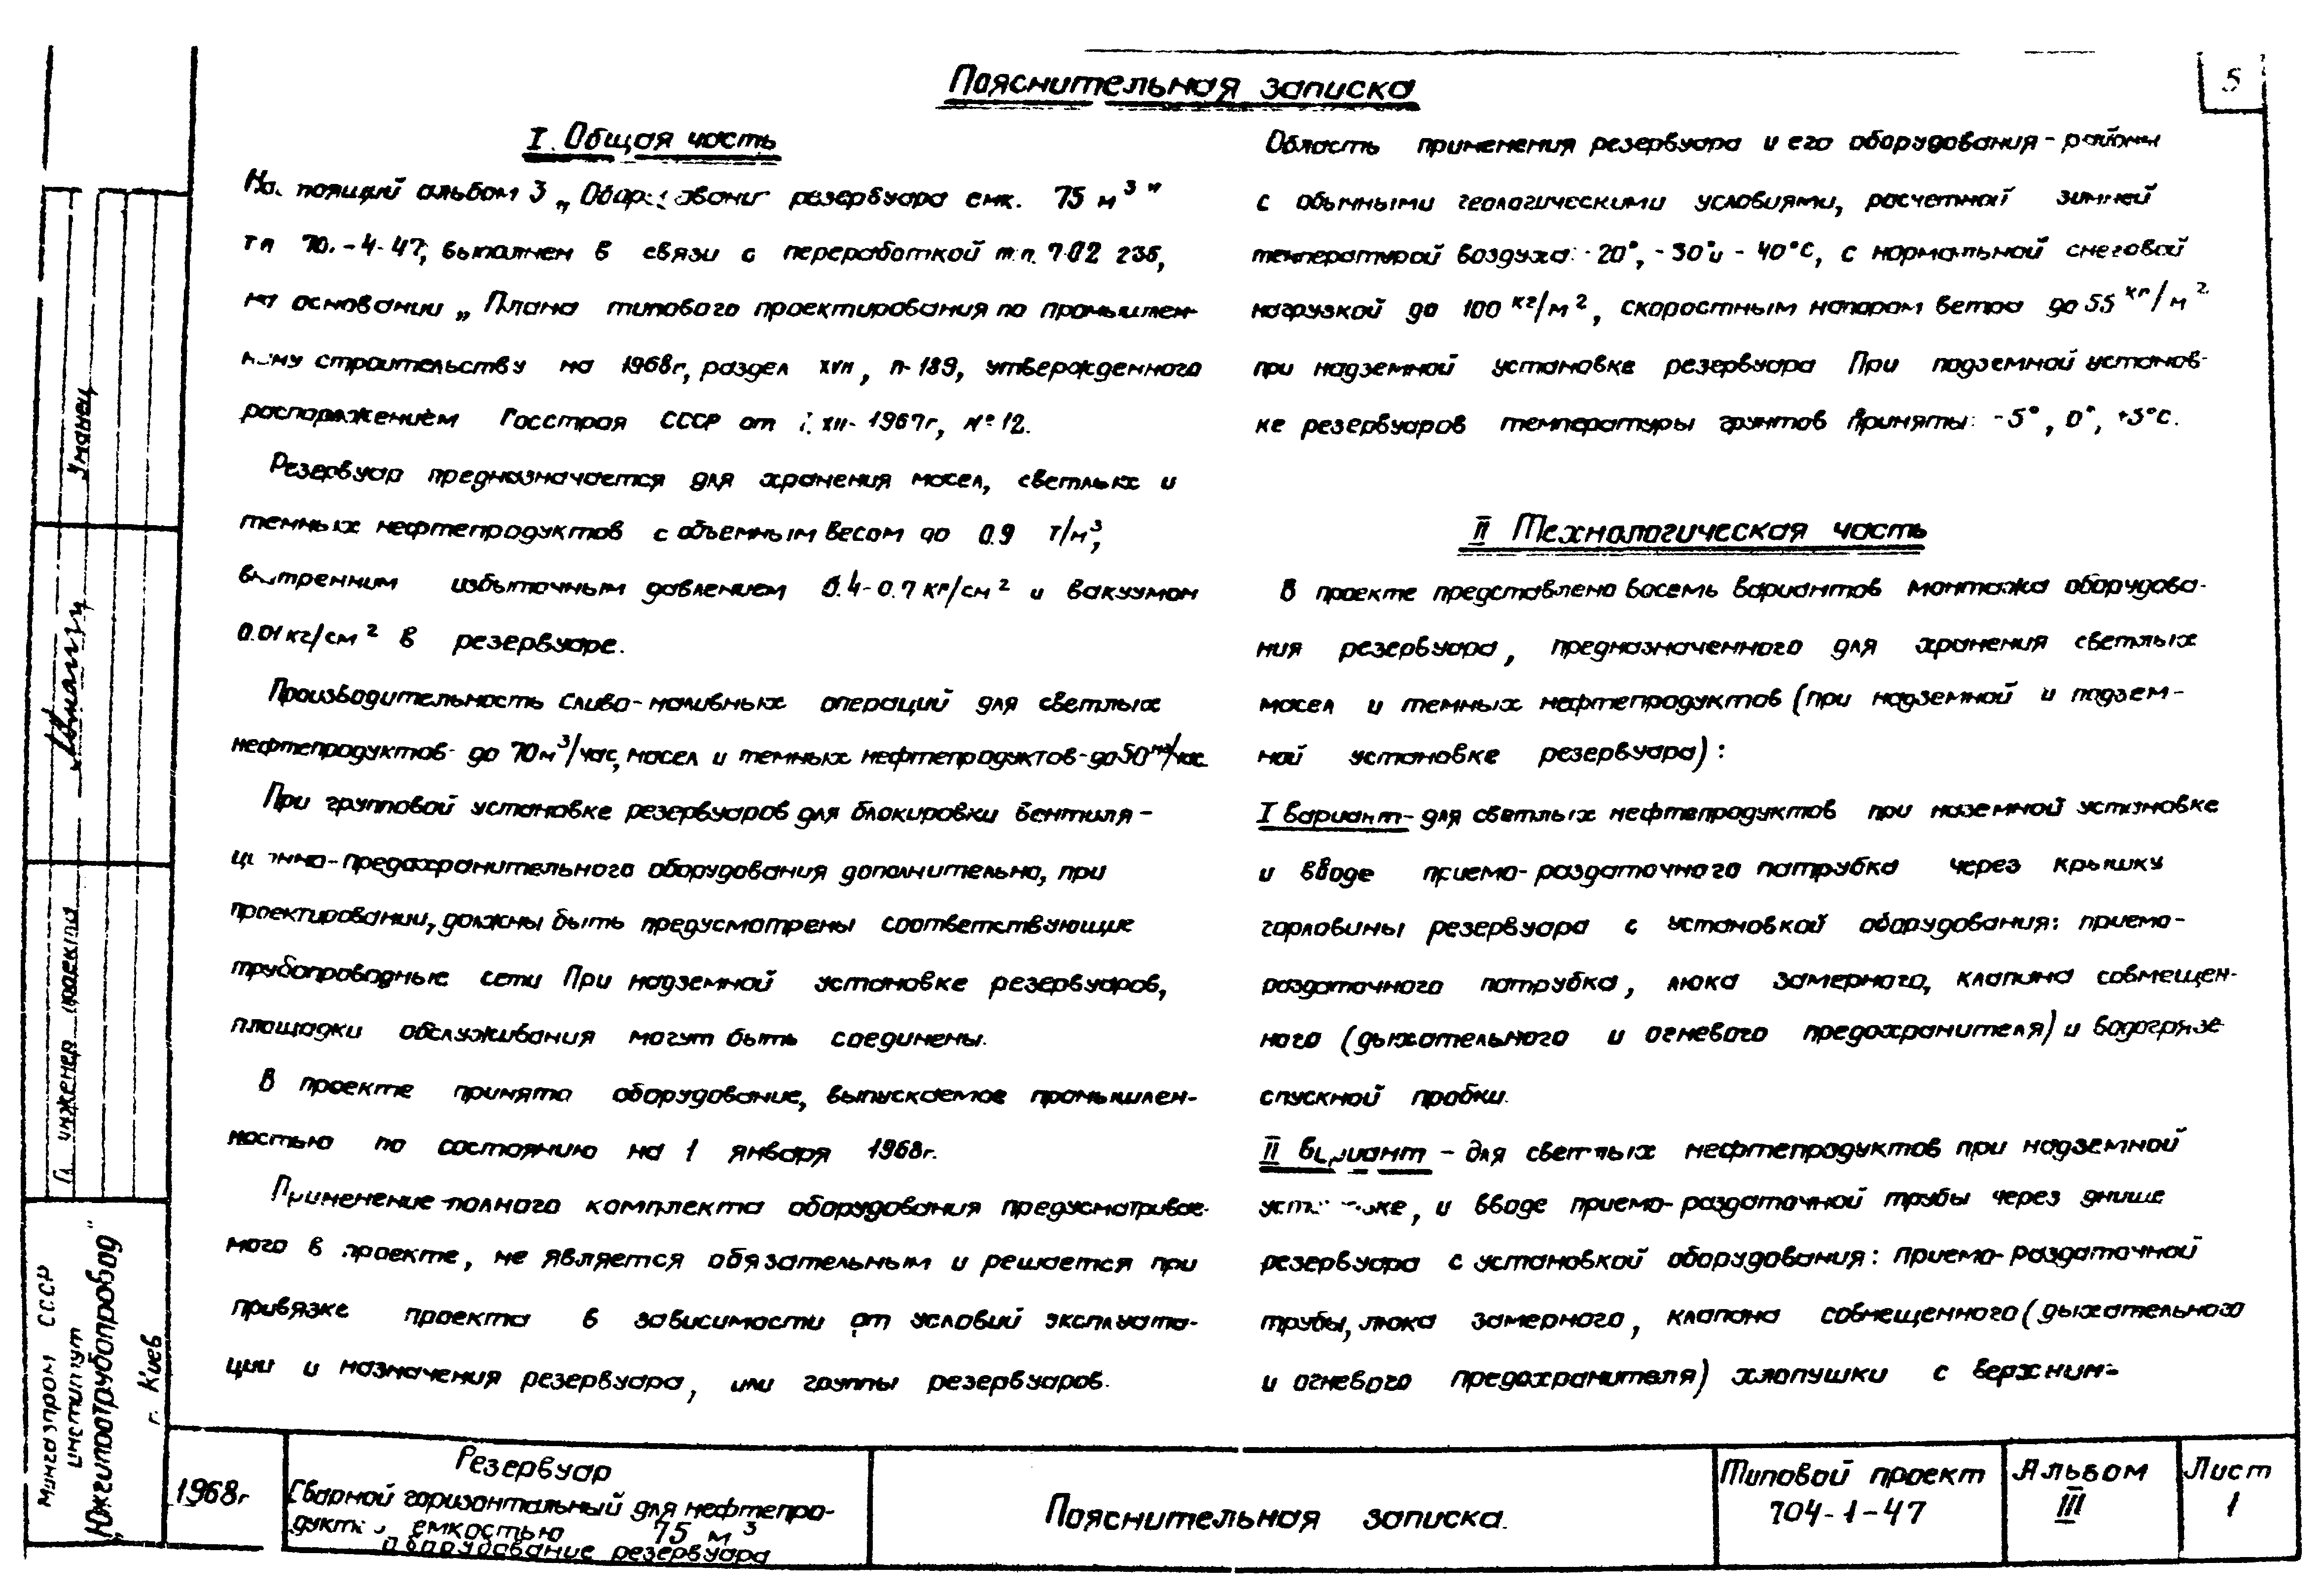 5
Пояснительная записка
I. Общая часть
альбом 3 „ резервуара емк. 75 м³"
выполнен в связи с переработкой т.п.
на основании „ Плана типового проектирования по промышлен-
ному строительству на 1968г, раздел XVII, п-189, утвержденного
распоряжением Госстроя СССР от XII- 1967г, №12.
Резервуар предназначается для хранения масел, светлых и
темных нефтепродуктов с объемным весом до 0.9 т/м³,
внутренним избыточным давлением 0.4-0.7 кг/см² и вакуумом
0.01 кг/см² в резервуаре.
Производительность сливо-наливных операций для светлых
нефтепродуктов- до 70м³/час, масел и темных нефтепродуктов-до 50м³/час
При групповой установке резервуаров для блокировки вентиля-
ционно-предохранительного оборудования дополнительно, при
проектировании, должны быть предусмотрены соответствующие
трубопроводные сети При надземной установке резервуаров,
площадки обслуживания могут быть соединены.
В проекте принято оборудование, выпускаемое промышлен-
ностью по состоянию на 1 января 1968г.
Применение полного комплекта оборудования предусматривае-
мого в проекте, не является обязательным и решается при
привязке проекта в зависимости от условий эксплуата-
ции и назначения резервуара, или группы резервуаров.
Область применения резервуара и его оборудования - районы
с обычными геологическими условиями, расчетной зимней
температурой воздуха: -20°, -30° и -40°С, с нормальной снеговой
нагрузкой до 100 кг/м², скоростным напором ветра до 55 кг/м²
при надземной установке резервуара При подземной установ-
ке резервуаров температуры грунтов приняты: -5°, 0°, +5°С.
II Технологическая часть
В проекте представлено восемь вариантов монтажа оборудова-
ния резервуара, предназначенного для хранения светлых
масел и темных нефтепродуктов (при надземной и подзем-
ной установке резервуара):
I вариант- для светлых нефтепродуктов при наземной установке
и вводе приемо-раздаточного патрубка через крышку
горловины резервуара с установкой оборудования: приемо-
раздаточного патрубка, люка замерного, клапана совмещен-
ного (дыхательного и огневого предохранителя) и водогрязе-
спускной пробки.
II вариант - для светлых нефтепродуктов при надземной
установке, и вводе приемо-раздаточной трубы через днище
резервуара с установкой оборудования: приемо-раздаточной
трубы, люка замерного, клапана совмещенного (дыхательного
и огневого предохранителя) хлопушки с верхним-
Уманец
Гл. инженер проекта
Мингазпром СССР
институт
„Южгипротрубопровод"
г. Киев
1968г
Резервуар
Сварной горизонтальный для нефтепро-
дуктов емкостью 75 м³
оборудование резервуара
Пояснительная записка.
Типовой проект
704-1-47
Альбом
III
Лист
1